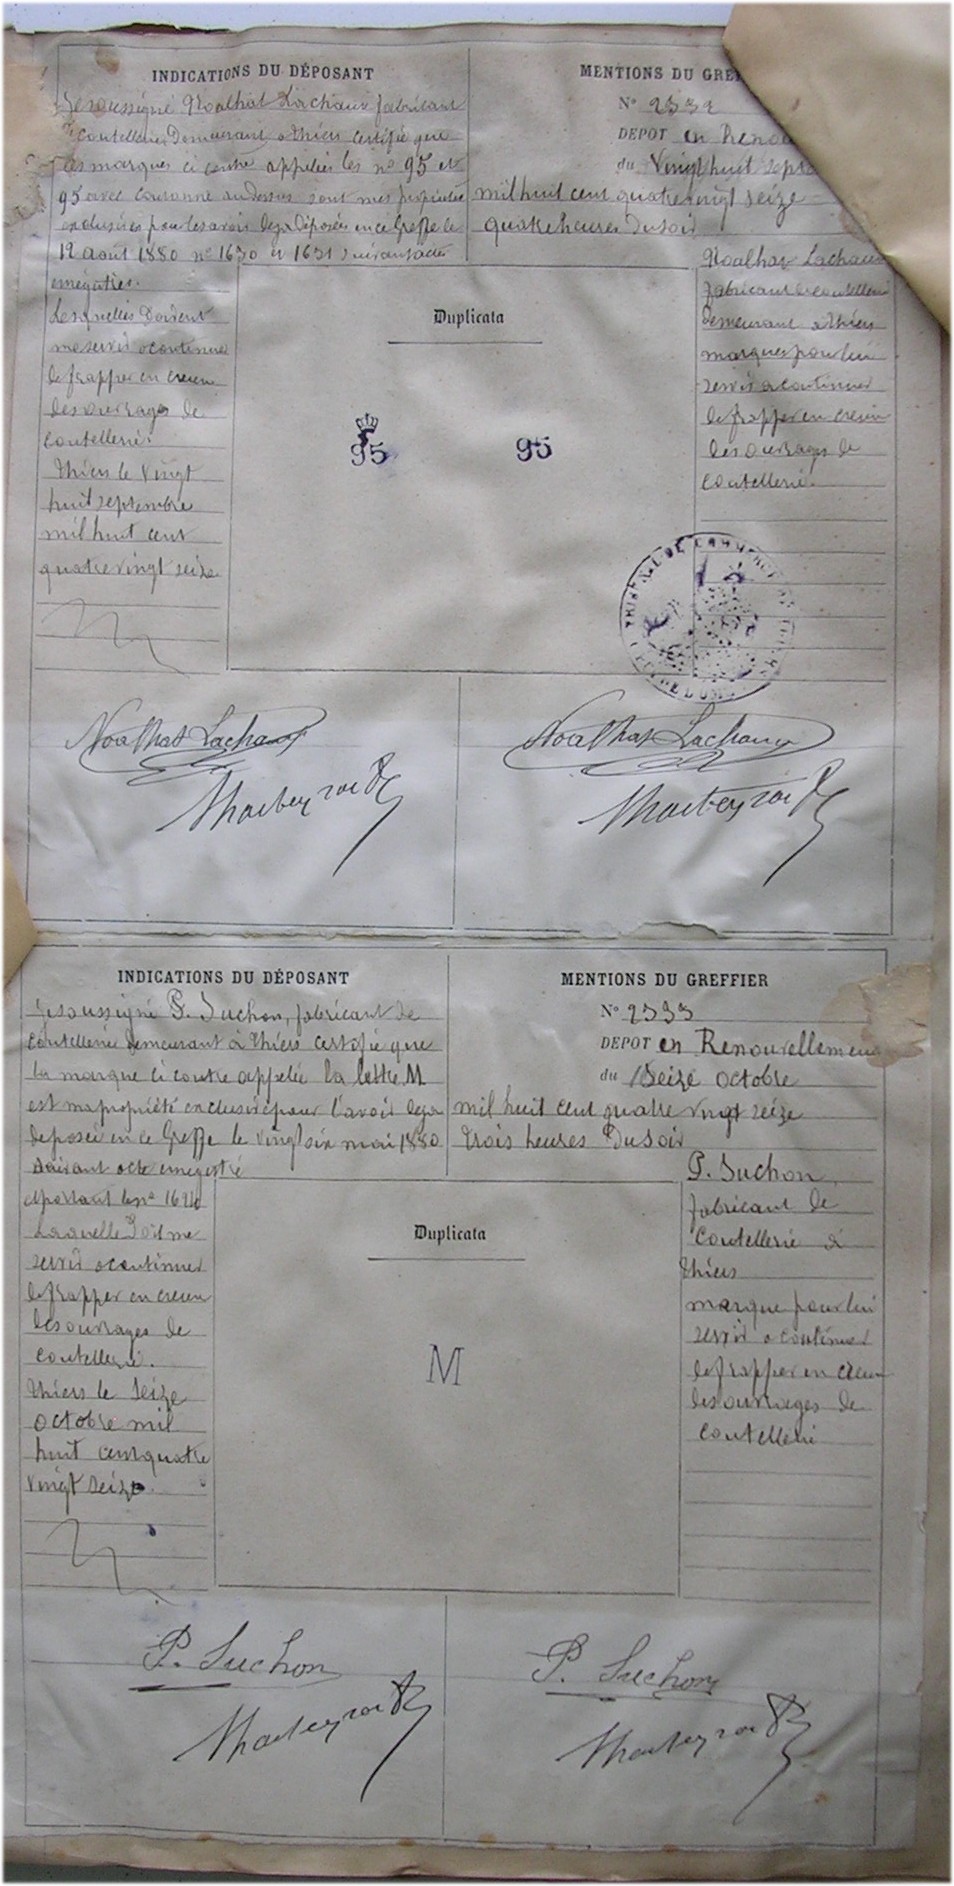 INDICATIONS DU DÉPOSANT
Je soussigné Noalhat Lachaux fabricant
de coutellerie Demeurant à Thiers certifie que
les marques ci contre appelées les no 95 et
95 avec couronne au dessus sont mes propriétés
exclusives pour les avoir deja déposées en ce Greffe le
12 août 1880 no 1630 et 1631 suivant actes
enregistrés.
Lesquelles doivent
me servir a continuer
de frapper en creux
des ouvrages de
coutellerie.
Thiers le vingt
huit septembre
mil huit cent
quatre vingt seize
MENTIONS DU GREF
No 2332
DEPOT en Renou
du Vingt huit septe
mil huit cent quatre vingt seize
quatre heures Du soir
Noalhat Lachaux
fabricant de coutellerie
demeurant a Thiers
marques pour lui
servir a continuer
de frapper en creux
des ouvrages de
coutellerie.
Duplicata
95 95
TRIBUNAL DE COMMERCE
Noalhat Lachaux Noalhat Lachaux
INDICATIONS DU DÉPOSANT
Je soussigné P. Suchon, fabricant de
coutellerie demeurant à Thiers certifie que
la marque ci contre appelée la lettre M
est ma propriété exclusive pour l'avoir deja
deposée en ce Greffe le vingt six mai 1880
suivant acte enregistré
et portant le no 1624
Laquelle Doit me
servir a continuer
de frapper en creux
des ouvrages de
coutellerie.
Thiers le seize
octobre mil
huit cent quatre
vingt seize.
MENTIONS DU GREFFIER
No 2333
DEPOT en Renouvellement
du Seize octobre
mil huit cent quatre vingt seize
trois heures Du soir
P. Suchon,
fabricant de
coutellerie à
Thiers
marque pour lui
servir a continuer
de frapper en creux
des ouvrages de
coutellerie
Duplicata
M
P. Suchon P. Suchon